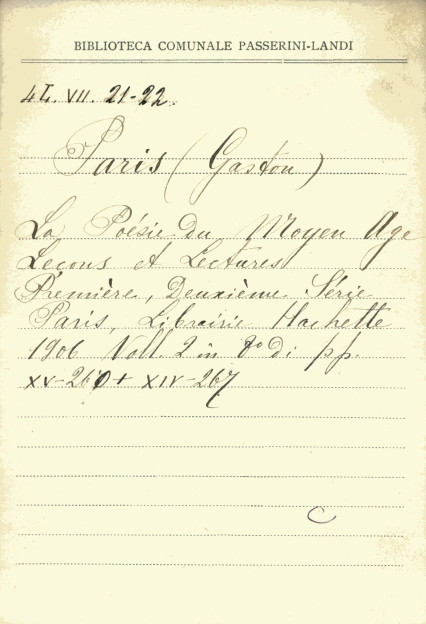 BIBLIOTECA COMUNALE PASSERINI-LANDI
4L. VII. 21-22.
Paris (Gaston)
La Poésie du Moyen Age
Leçons et Lectures
Première, Deuxième Série
Paris, Librairie Hachette
1906 Voll. 2 in 8º di pp.
XV-260 + XIV-267
C